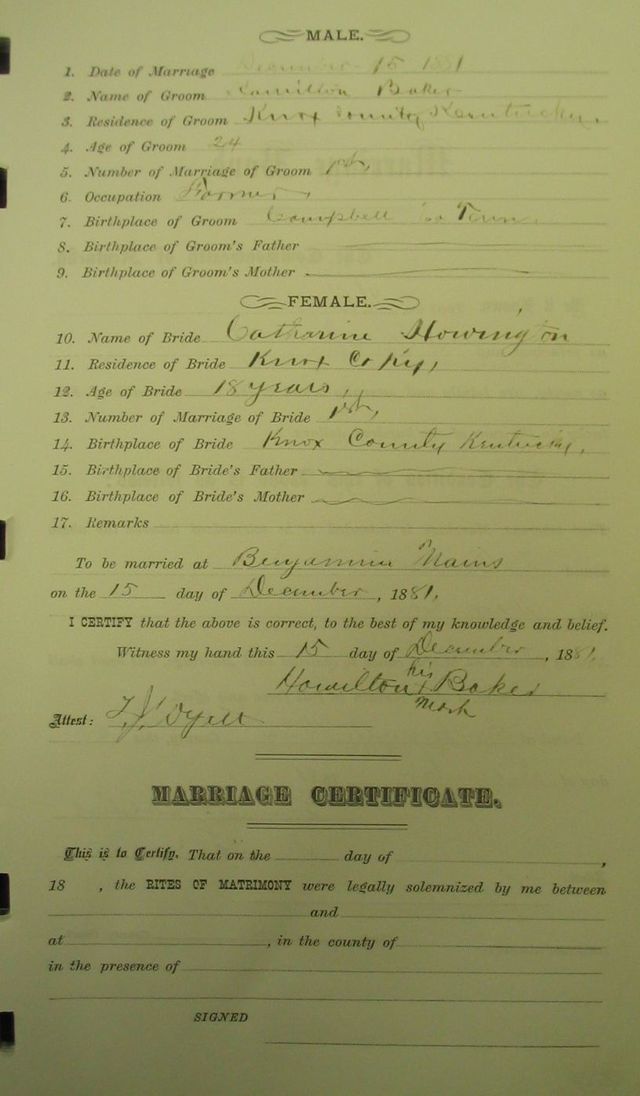 MALE.
1. Date of Marriage December 15 1881
2. Name of Groom Hamilton Baker
3. Residence of Groom Knox County Kentucky.
4. Age of Groom 24
5. Number of Marriage of Groom 1st,
6. Occupation Farmer,
7. Birthplace of Groom Campbell Co Tenn.
8. Birthplace of Groom's Father
9. Birthplace of Groom's Mother
FEMALE.
10. Name of Bride Catharine Howington
11. Residence of Bride Knox Co Ky,
12. Age of Bride 18 years,
13. Number of Marriage of Bride 1st,
14. Birthplace of Bride Knox County Kentucky,
15. Birthplace of Bride's Father
16. Birthplace of Bride's Mother
17. Remarks
To be married at Benjamin
on the 15 day of December, 1881.
I CERTIFY that the above is correct, to the best of my knowledge and belief.
Witness my hand this 15 day of December, 1881.
Hamilton his x mark Baker
Attest:
MARRIAGE CERTIFICATE.
This is to Certify, That on the day of ,
18 , the RITES OF MATRIMONY were legally solemnized by me between
and
at , in the county of
in the presence of
SIGNED